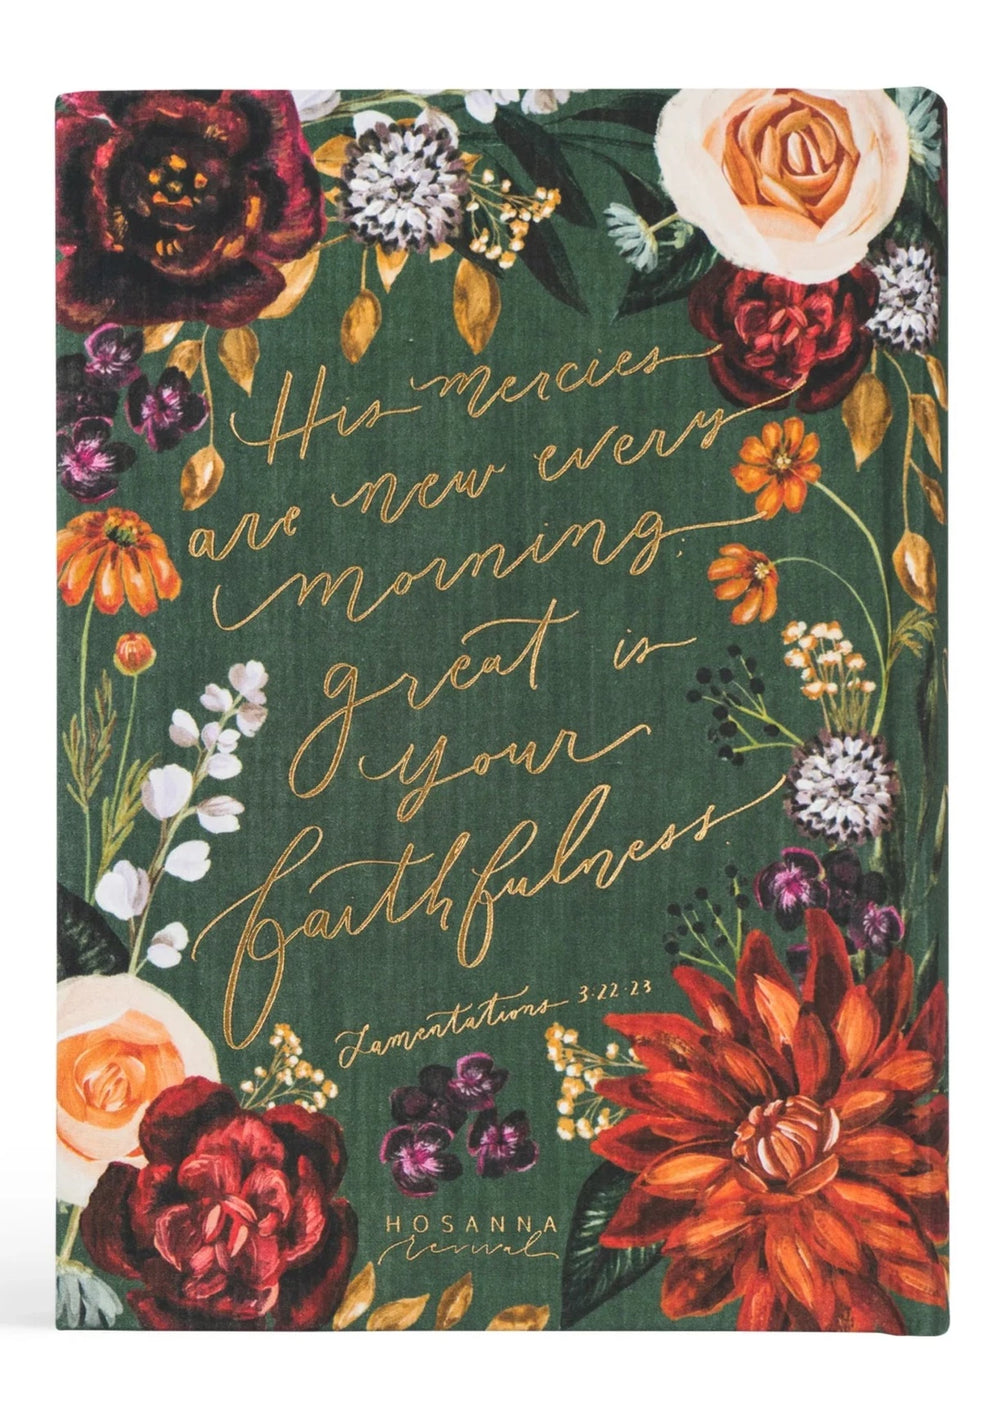 His mercies
are new every
morning;
great is
your
faithfulness.
Lamentations 3:22-23
HOSANNA
revival